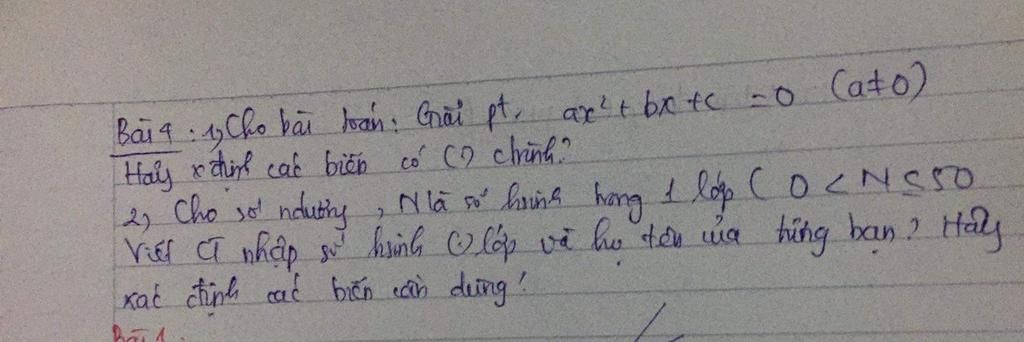 Bài 4: 1, Cho bài toán: Giải pt, ax² + bx + c = 0 (a ≠ 0)
Hãy xđịnh các biến có () chrình?
2, Cho số ndương, N là số hsinh trong 1 lớp (0 < N ≤ 50
Viết CT nhập số hsinh () lớp và họ tên của từng bạn? Hãy
xác định các biến cần dùng!
Bài 1: